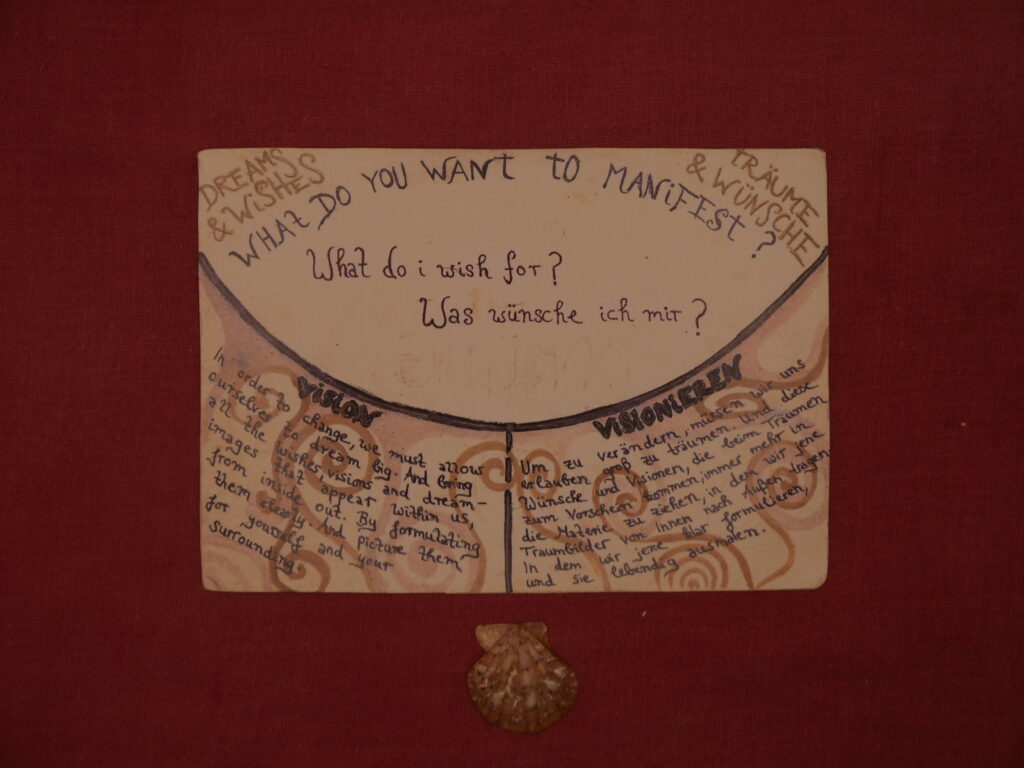 DREAMS
& WISHES
WHAT DO YOU WANT TO MANIFEST?
TRÄUME
& WÜNSCHE
What do i wish for?
Was wünsche ich mir?
VISION
In order to change, we must allow
ourselves to dream big. And bring
all the wishes, visions and dream-
images that appear within us,
from inside out. By formulating
them clearly. And picture them
for yourself and your
surrounding.
VISIONIEREN
Um zu verändern, müssen wir uns
erlauben groß zu träumen. Und diese
Wünsche und Visionen, die beim Träumen
zum Vorschein kommen, immer mehr in
die Materie zu ziehen, in dem wir jene
Traumbilder von Innen nach Außen tragen
In dem wir jene klar formulieren,
und sie lebendig ausmalen.